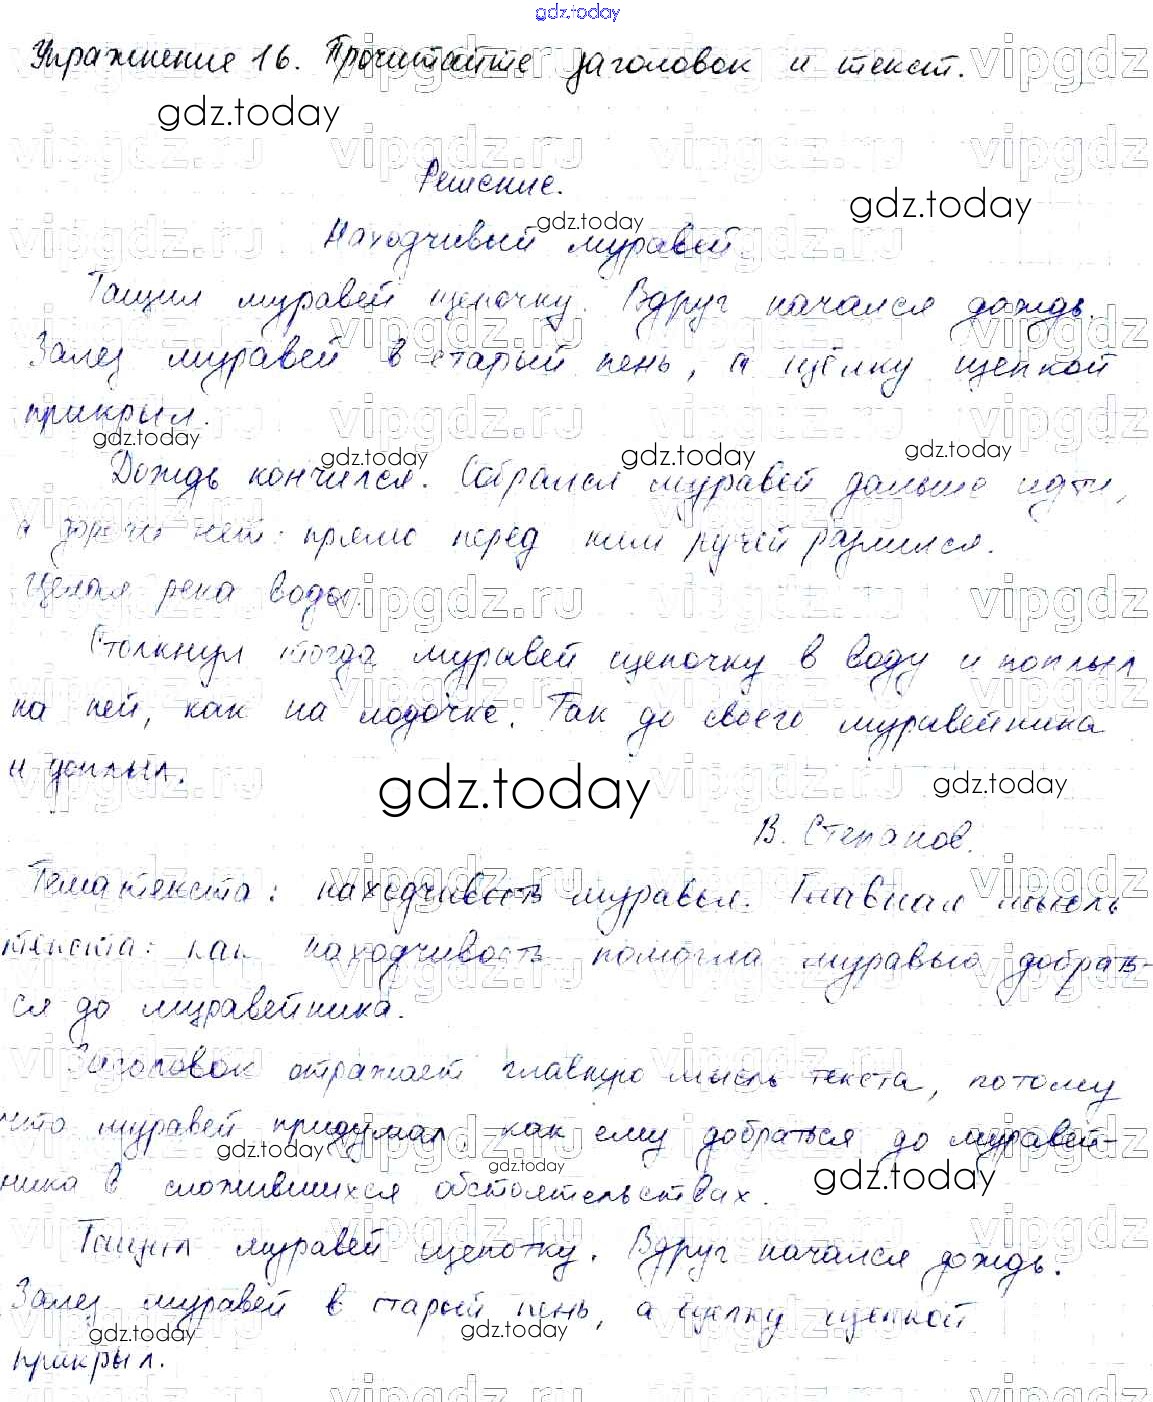 gdz.today
Упражнение 16. Прочитайте заголовок и текст.
gdz.today
Решение.
gdz.today
gdz.today
Находчивый муравей.
Тащил муравей щепочку. Вдруг начался дождь.
Залез муравей в старый пень, а щёлку щепкой
прикрыл.
gdz.today gdz.today gdz.today gdz.today
Дождь кончился. Собрался муравей дальше идти,
а дороги нет: прямо перед ним ручей разлился.
Целая река воды.
Столкнул тогда муравей щепочку в воду и поплыл
на ней, как на лодочке. Так до своего муравейника
и доплыл.
gdz.today gdz.today
В. Степанов.
Тема текста: находчивость муравья. Главная мысль
текста: как находчивость помогла муравью добрать-
ся до муравейника.
Заголовок отражает главную мысль текста, потому
что муравей придумал, как ему добраться до муравей-
gdz.today gdz.today gdz.today
ника в сложившихся обстоятельствах.
Тащил муравей щепотку. Вдруг начался дождь.
Залез муравей в старый пень, а щелку щепкой
gdz.today gdz.today
прикрыл.